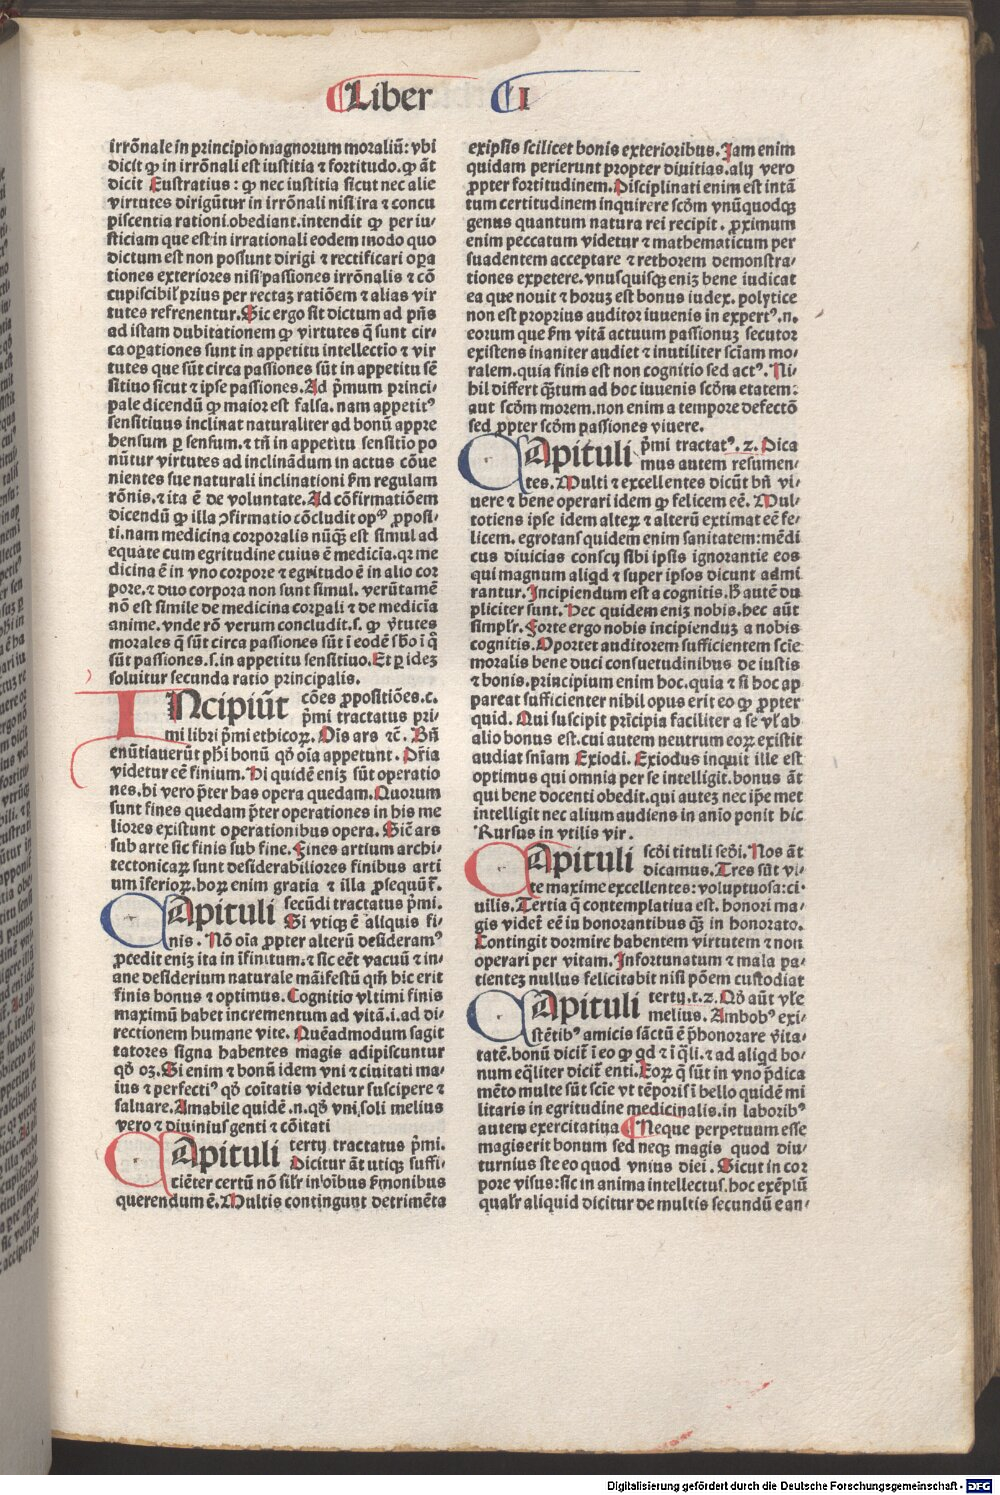 Liber I
irrõnale in principio magnorum moraliũ: vbi
dicit ꝙ in irrõnali est iustitia ⁊ fortitudo.ꝙ ãt
dicit Eustratius: ꝙ nec iustitia sicut nec alie
virtutes dirigũtur in irrõnali nisi ira ⁊ concu
piscentia rationi.obediant.intendit ꝙ per iu⸗
sticiam que est in irrationali eodem modo quo
dictum est non possunt dirigi ⁊ rectificari oꝑa
tiones exteriores nisi passiones irrõnalis ⁊ cõ
cupiscibil' prius per rectaꝫ ratiõem ⁊ alias vir
tutes refrenentur.Sic ergo sit dictum ad pñs
ad istam dubitationem ꝙ virtutes q̃ sunt cir⸗
ca oꝑationes sunt in appetitu intellectio ⁊ vir
tutes que sũt circa passiones sũt in appetitu sẽ
sitiuo sicut ⁊ ipse passiones.Ad p̃mum princi⸗
pale dicendũ ꝙ maior est falsa. nam appetitꝰ
sensitiuus inclinat naturaliter ad bonũ appre
hensum ꝑ sensum.⁊ tñ in appetitu sensitio po
nũtur virtutes ad inclinãdum in actus cõue
nientes sue naturali inclinationi ẜm regulam
rõnis.⁊ ita ẽ de voluntate.Ad cõfirmatiõem
dicendũ ꝙ illa ↄfirmatio cõcludit opꝰ ꝓposi⸗
ti.nam medicina corporalis nũꝗ̃ est simul ad
equate cum egritudine cuius ẽ medicia.qꝛ me
dicina ẽ in vno corpore ⁊ egritudo ẽ in alio cor
pore.⁊ duo corpora non sunt simul. verũtamẽ
nõ est simile de medicina corꝑali ⁊ de medicia
anime.vnde rõ verum concludit.s. ꝙ v̓tutes
morales q̃ sũt circa passiones sũt ĩ eodẽ sbo ĩ q̃
sũt passiones.s.in appetitu sensitiuo.Et ꝑ ideꝫ
soluitur secunda ratio principalis.
INcipiũt cões ꝓpositiões.c.
p̃mi tractatus pri⸗
mi libri p̃mi ethicoꝝ. Ois ars ⁊c. Bñ
enũtiauerũt phi bonũ qđ oia appetunt. Dr̃ia
videtur eẽ finium.Hi quidẽ eniꝫ sũt operatio
nes.hi vero p̃ter has opera quedam.Quorum
sunt fines quedam p̃ter operationes in his me
liores existunt operationibus opera. Sic ars
sub arte sic finis sub fine. Fines artium archi⸗
tectonicaꝝ sunt desiderabiliores finibus arti
um ĩferioꝝ.hoꝝ enim gratia ⁊ illa ꝓsequũt̃.
CApituli secũdi tractatus p̃mi.
Si vtiqꝫ ẽ aliquis fi⸗
nis. Nõ oia ꝓpter alterũ desideramꝰ
ꝓcedit eniꝫ ita in ĩfinitum.⁊ sic eẽt vacuũ ⁊ in⸗
ane desiderium naturale mãifestũ qm̃ hic erit
finis bonus ⁊ optimus. Cognitio vltimi finis
maximũ habet incrementum ad vitã.i.ad di⸗
rectionem humane vite. Quẽadmodum sagit
tatores signa habentes magis adipiscuntur
qđ oꝫ.Si enim ⁊ bonũ idem vni ⁊ ciuitati ma⸗
ius ⁊ perfectiꝰ qđ cõitatis videtur suscipere ⁊
saluare.Amabile quidẽ.n.qđ vni soli melius
vero ⁊ diuinius genti ⁊ cõitati
CApituli tertij tractatus p̃mi.
Dicitur ãt vtiqꝫ suffi⸗
ciẽter certũ nõ sil'r in oibus ẜmonibus
querendum ẽ.Multis contingunt detrimẽta
exipsis scilicet bonis exterioribus.Jam enim
quidam perierunt propter diuitias.alij vero
ꝓpter fortitudinem.Disciplinati enim est intã
tum certitudinem inquirere scđm vnũquodqꝫ
genus quantum natura rei recipit. ꝓximum
enim peccatum videtur ⁊ mathematicum per
suadentem acceptare ⁊ rethorem demonstra⸗
tiones expetere.vnusquisqꝫ eniꝫ bene iudicat
ea que nouit ⁊ horuꝫ est bonus iudex. polytice
non est proprius auditor iuuenis in expertꝰ.n.
eorum que ẜm vitã actuum passionuꝫ secutor
existens inaniter audiet ⁊ inutiliter sciam mo⸗
ralem.quia finis est non cognitio sed actꝰ. Ni⸗
hil differt ꝗ̃tum ad hoc iuuenis scđm etatem:
aut scđm morem.non enim a tempore defectõ
sed ꝓpter scđm passiones viuere.
CApituli p̃mi tractatꝰ.2. Dica
mus autem resumen⸗
tes. Multi ⁊ excellentes dicũt bñ vi⸗
uere ⁊ bene operari idem ꝙ felicem eẽ. Mul⸗
totiens ipse idem alteꝝ ⁊ alterũ extimat eẽ fe⸗
licem. egrotans quidem enim sanitatem:mẽdi
cus diuicias conscij sibi ipsis ignorantie eos
qui magnum aliqd ⁊ super ipsos dicunt admi
rantur. Incipiendum est a cognitis. H̓ autẽ du
pliciter sunt. Hec quidem eniꝫ nobis.hec aũt
simpl'r. Forte ergo nobis incipienduꝫ a nobis
cognitis.Oportet auditorem sufficientem scie
moralis bene duci consuetudinibus de iustis
⁊ bonis.principium enim hoc.quia ⁊ si hoc ap
pareat sufficienter nihil opus erit eo ꝙ ꝓpter
quid. Qui suscipit pricipia faciliter a se vl' ab
alio bonus est.cui autem neutrum eoꝝ existit
audiat sniam Exiodi. Exiodus inquit ille est
optimus qui omnia per se intelligit.bonus ãt
qui bene docenti obedit.qui auteꝫ nec ipse met
intelligit nec alium audiens in anio ponit hic
Rursus in vtilis vir.
CApituli scđi tituli seđi. Nos ãt
dicamus.Tres sũt vi⸗
te maxime excellentes:voluptuosa:ci⸗
uilis.Tertia q̃ contemplatiua est. honori ma⸗
gis videt̃ eẽ in honorantibus ꝗ̃ in honorato.
Contingit dormire habentem virtutem ⁊ non
operari per vitam.Infortunatum ⁊ mala pa⸗
tienteꝫ nullus felicitabit nisi põem custodiat
CApituli tertij.t.2. Qđ aũt vl'e
melius. Ambobꝰ exi⸗
stẽtibꝰ amicis sãctũ ẽ p̃honorare v̓ita⸗
tatẽ.bonũ dicit̃ ĩ eo ꝙ qd ⁊ ĩ q̃li.⁊ ad aliqd bo⸗
num eq̃liter dicit̃ enti.Eoꝝ q̃ sũt in vno p̃dica
mẽto multe sũt scie vt tẽporis ĩ bello quidẽ mi
litaris in egritudine medicinalis.in laboribꝰ
autem exercitatiua Neque perpetuum esse
magiserit bonum sed neqꝫ magis quod diu⸗
turnius ste eo quod vnius diei. Sicut in cor
pore visus:sic in anima intellectus.hoc exẽplũ
qual'r aliquid dicitur de multis secundũ ean⸗
Digitalisierung gefördert durch die Deutsche Forschungsgemeinschaft - DFG